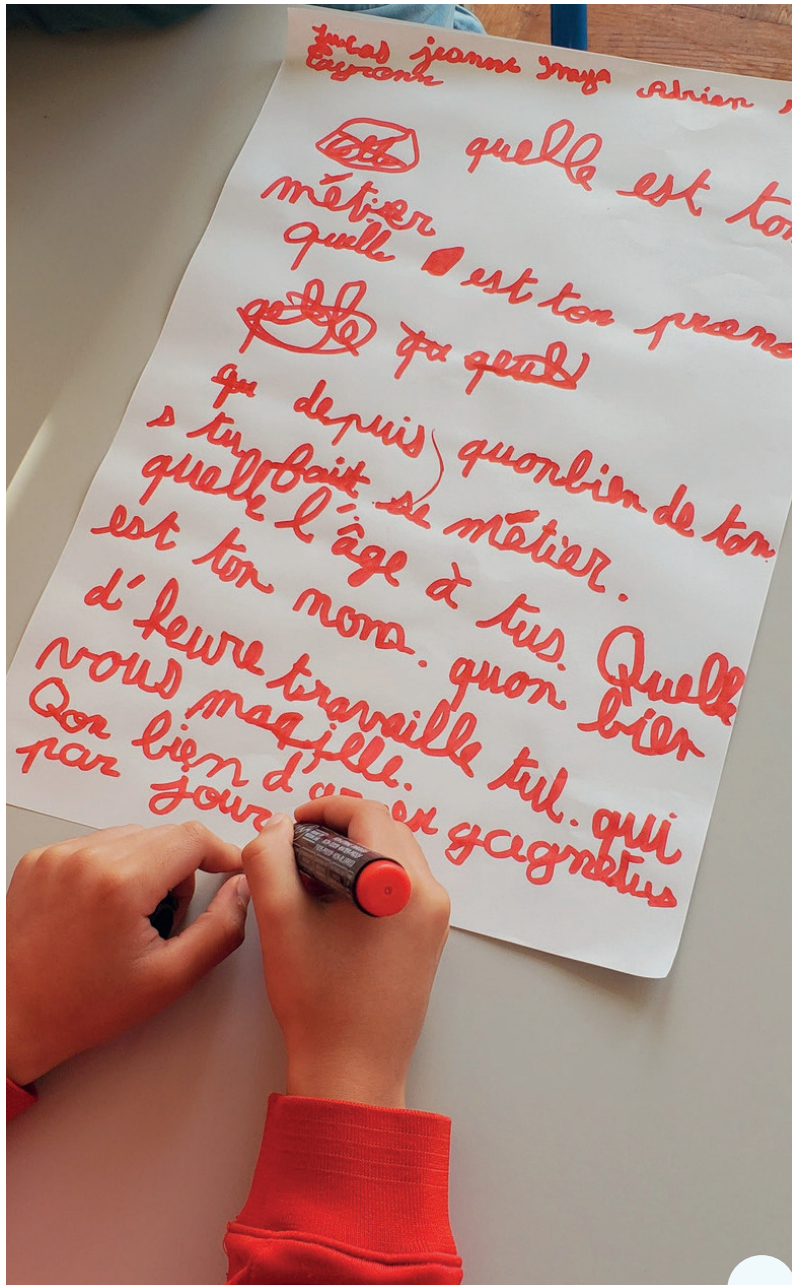 Lucas jeanne Inaya Adrien
quelle est ton
métier
quelle est ton preno
qu depuis quonbien de ton
s tu fait se métier.
quelle l'âge à tus. Quelle
est ton nons. quon bien
d'heure travaille tul. qui
vous maqille.
Qon bien d' gagnetus
par jour